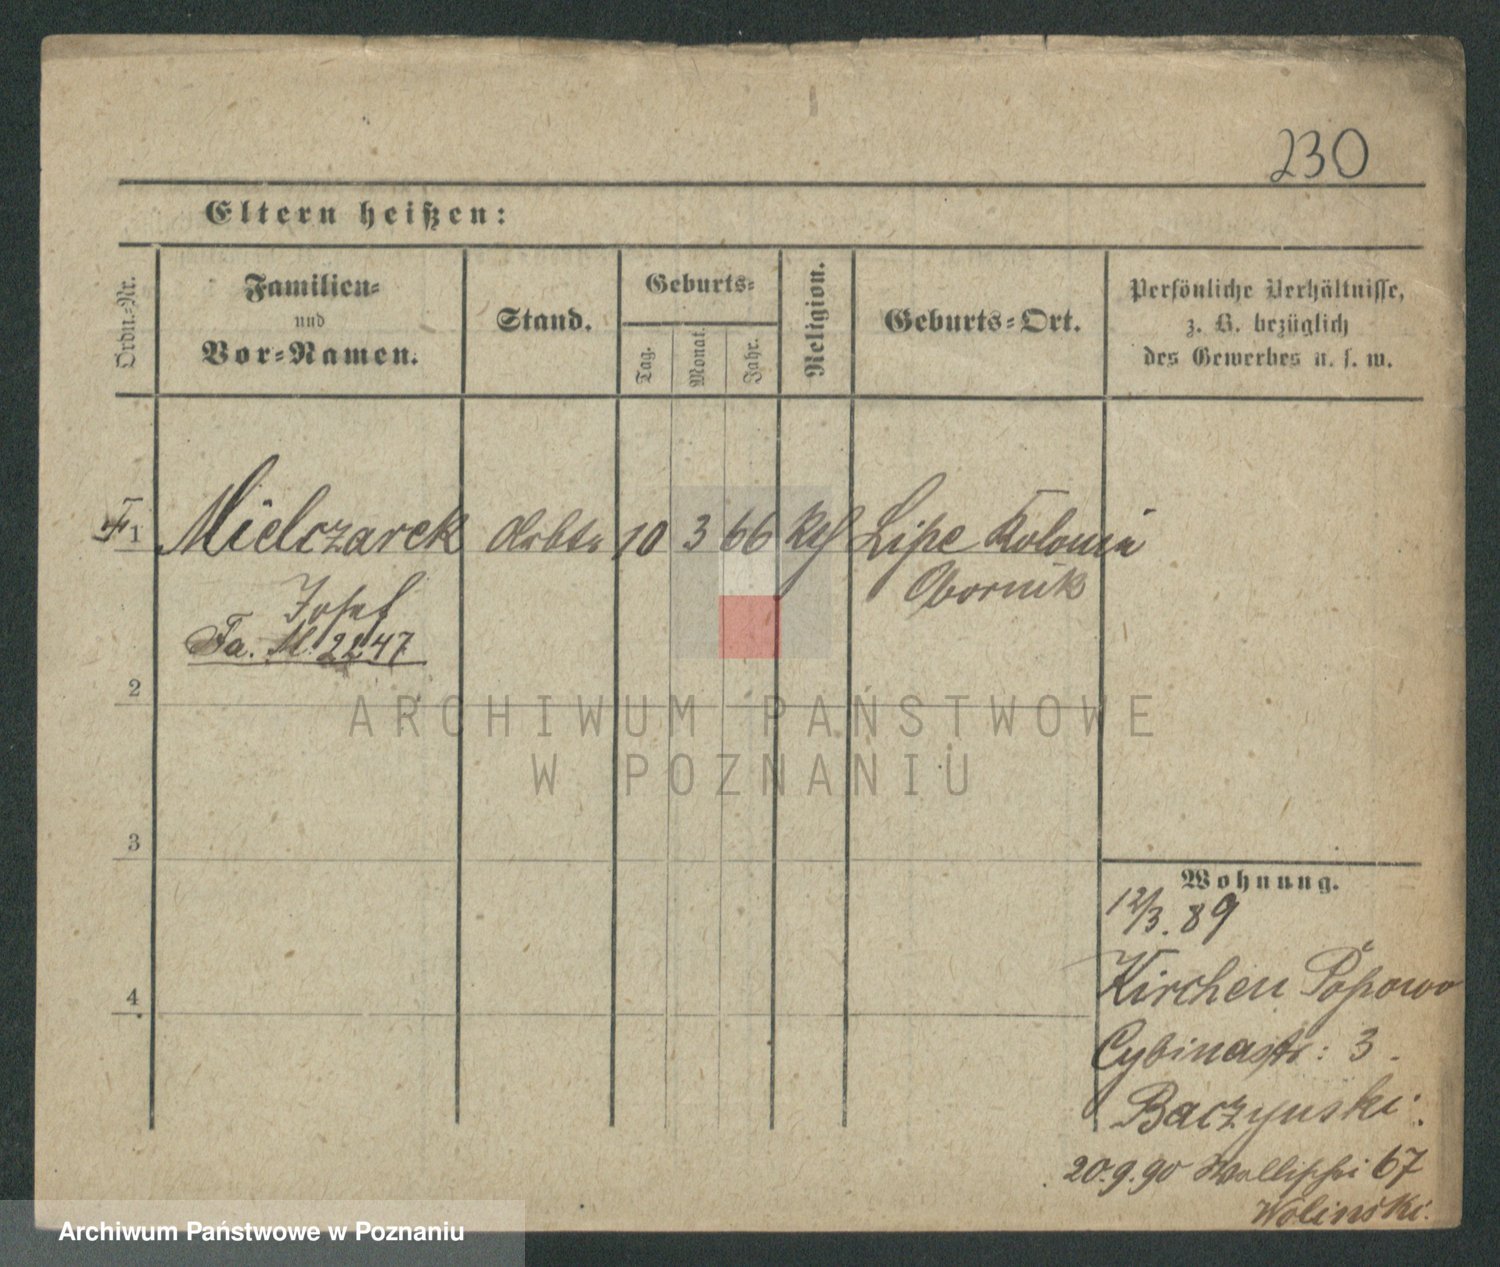 230
Eltern heißen:
Ordn.-Nr.
Familien-
und
Vor-Namen.
Stand.
Geburts-
Tag.
Monat.
Jahr.
Religion.
Geburts-Ort.
Persönliche Verhältnisse,
z. B. bezüglich
des Gewerbes u. s. w.
1 Mielczarek Arbtr 10 3 66 Kth Lipe Kolonia
Josef Obornik
Fa. M. 2247
2
ARCHIWUM PAŃSTWOWE
W POZNANIU
3
4
Wohnung.
12/3. 89
Kirchen Popowo
Cybinastr: 3.
Baczynski.
20.9.90 Wallischei 67
Wolinski.
Archiwum Państwowe w Poznaniu